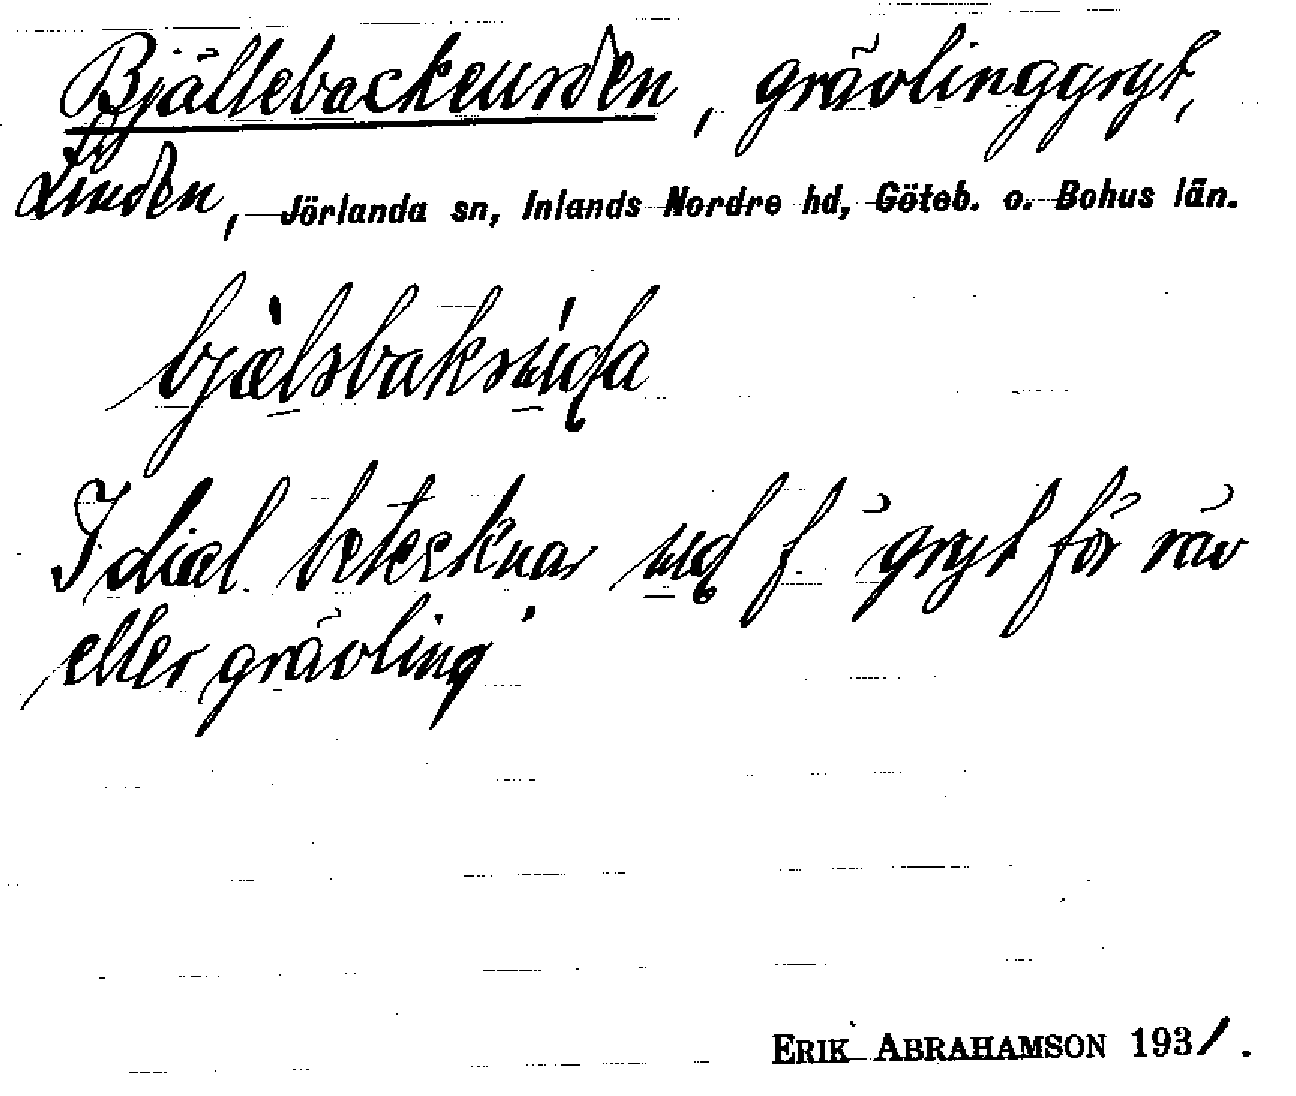 Bjällebackeurden, grävlinggryt,
Linden, Jörlanda sn, Inlands Nordre hd, Göteb. o. Bohus län.
I dial betecknar f gryt för räv
eller grävling
ERIK ABRAHAMSON 1931.